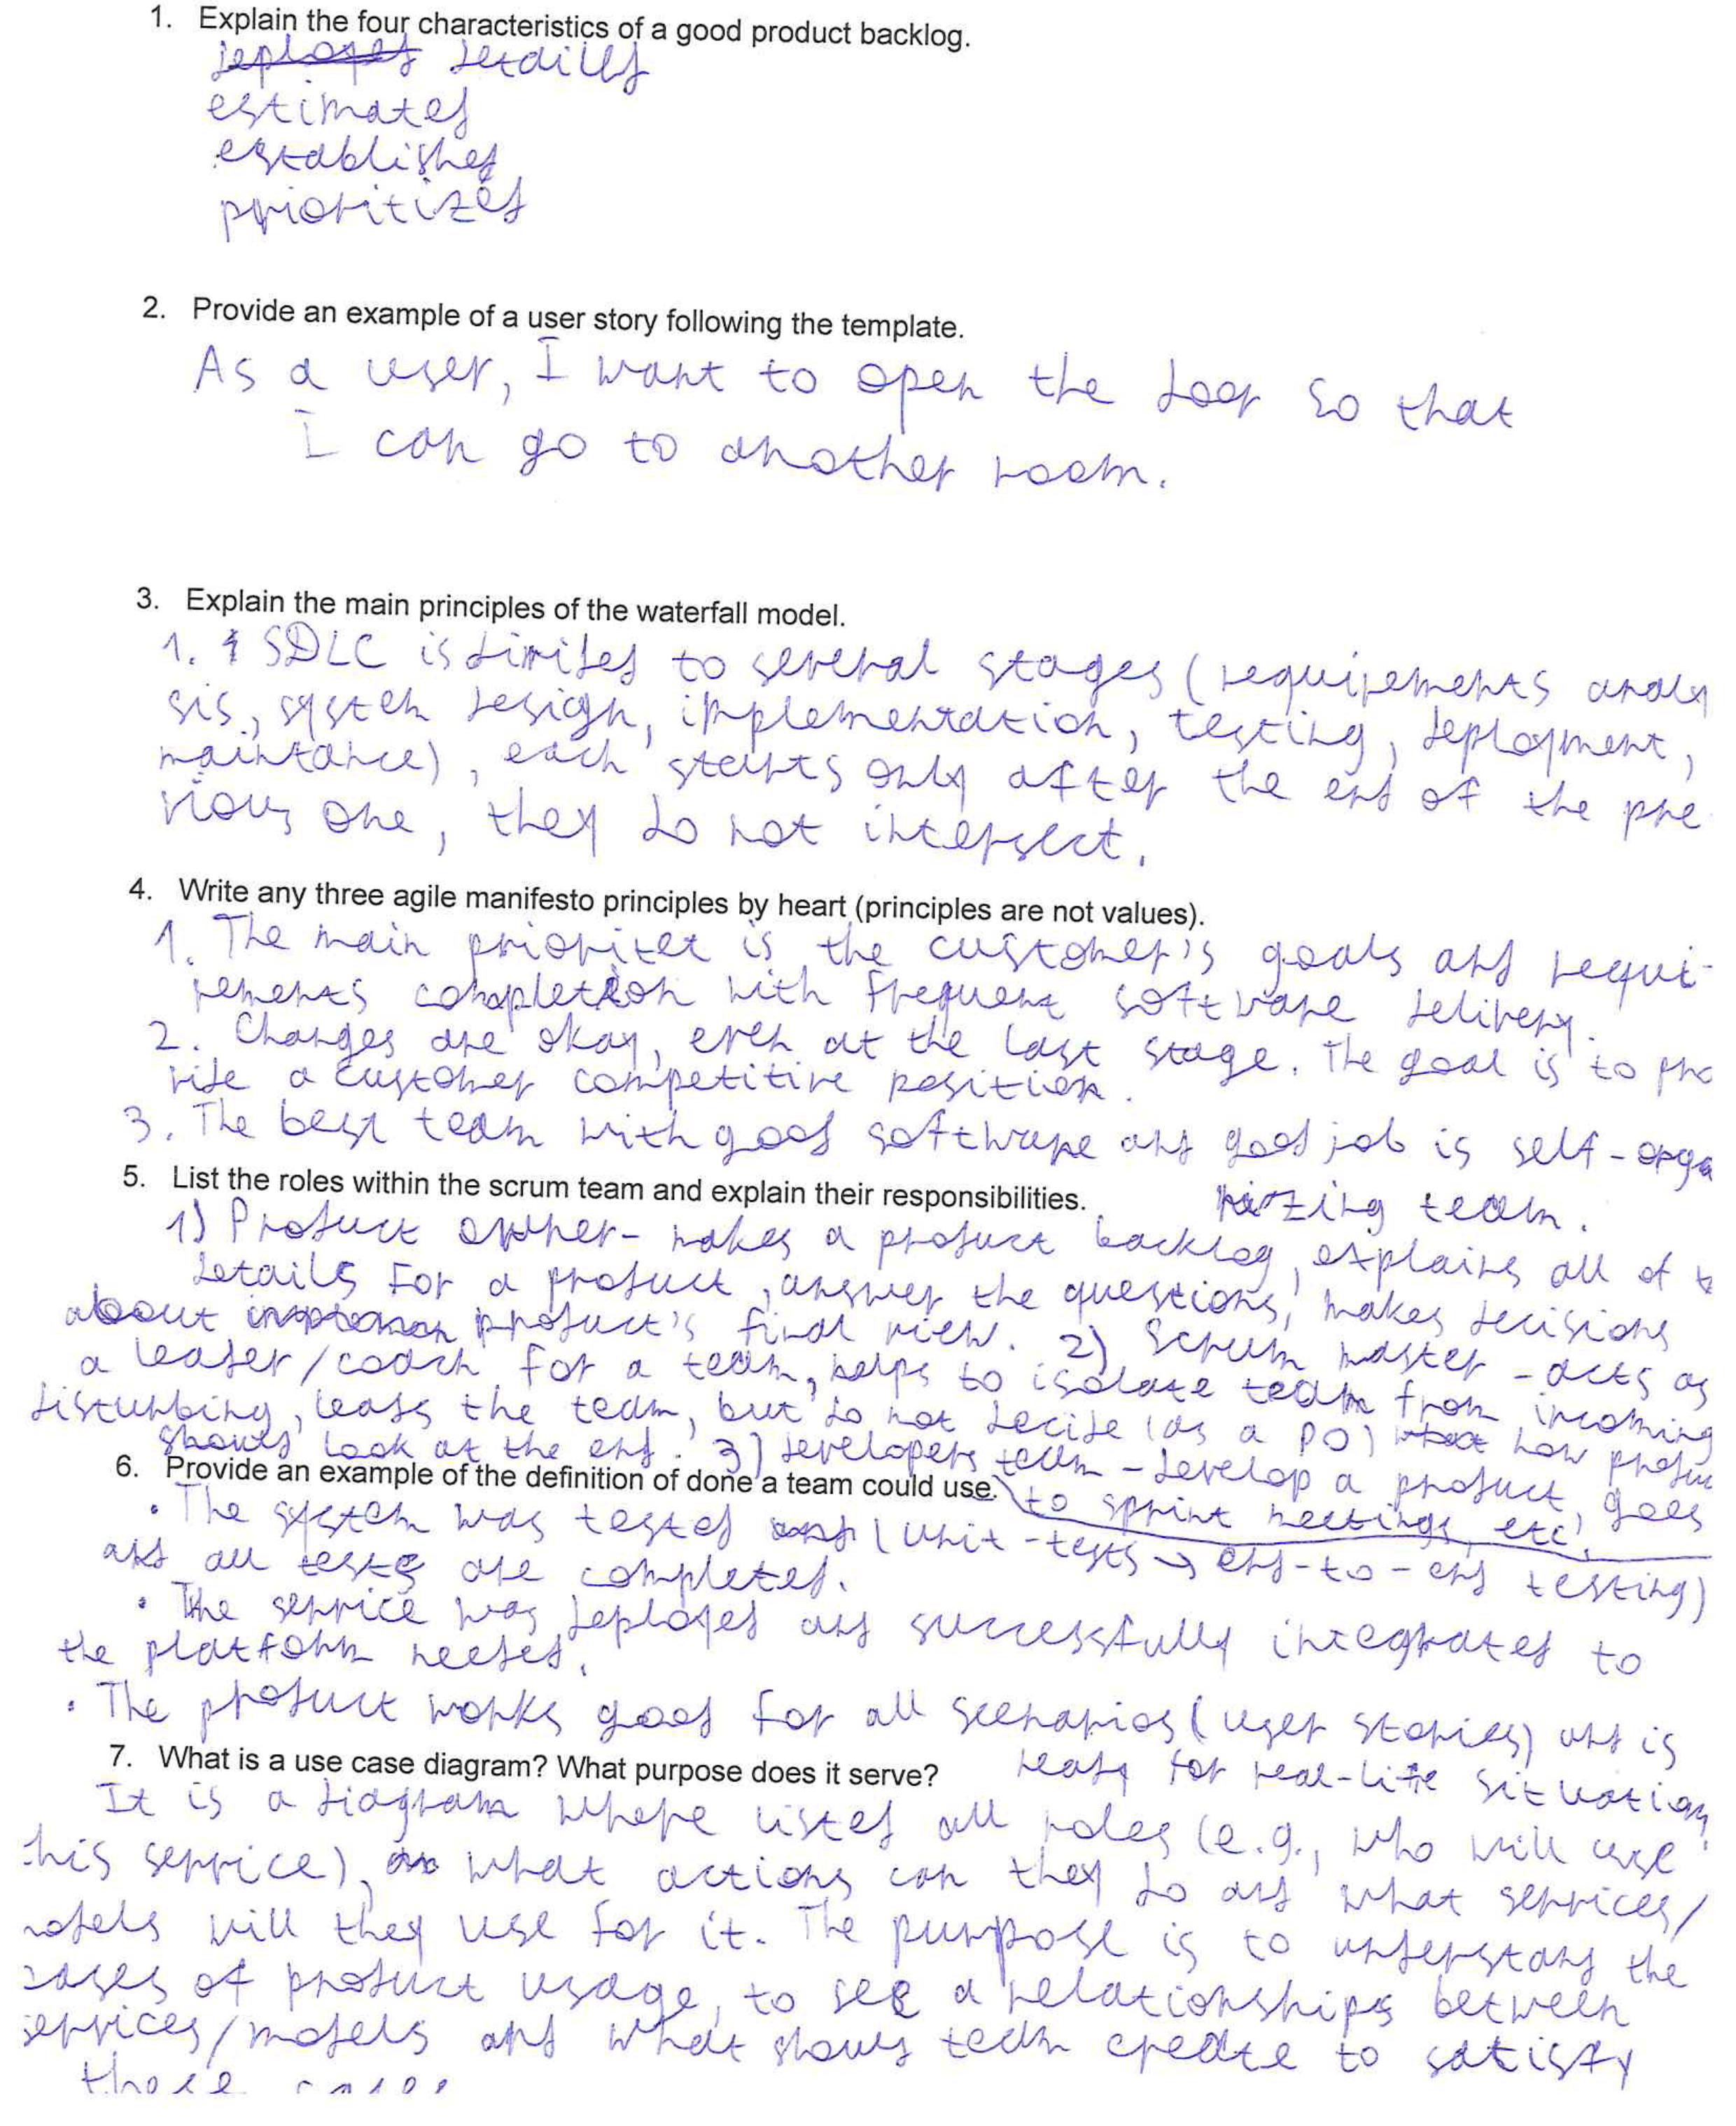 1. Explain the four characteristics of a good product backlog.
deployed detailed
estimated
established
prioritized
2. Provide an example of a user story following the template.
As a user, I want to open the door so that
I can go to another room.
3. Explain the main principles of the waterfall model.
1. SDLC is divided to several stages (requirements analy
sis, system design, implementation, testing, deployment,
maintance), each starts only after the end of the pre
vious one, they do not intersect.
4. Write any three agile manifesto principles by heart (principles are not values).
1. The main prioritet is the customer's goals and requi-
rements completion with frequent software delivery.
2. Changes are okay, even at the last stage. The goal is to pro
vide a customer competitive position.
3. The best team with good software and good job is self-orga
nizing team.
5. List the roles within the scrum team and explain their responsibilities.
1) Product owner - makes a product backlog, explains all of
details for a product, answer the questions, makes decisions
about product's final view. 2) Scrum master - acts as
a leader/coach for a team, helps to isolate team from incoming
disturbing, leads the team, but do not decide (as a PO) how produc
should look at the end. 3) developers team - develop a product, goes
to sprint meetings, etc.
6. Provide an example of the definition of done a team could use.
• The system was tested (unit-tests → end-to-end testing)
and all tests are completed.
• The service was deployed and successfully integrated to
the platform needed.
• The product works good for all scenarios (user stories) and is
ready for real-life situations
7. What is a use case diagram? What purpose does it serve?
It is a diagram where listed all roles (e.g., who will use
this service), what actions can they do and what services/
models will they use for it. The purpose is to understand the
cases of product usage, to see a relationships between
services/models and what should team create to satisfy
those cases